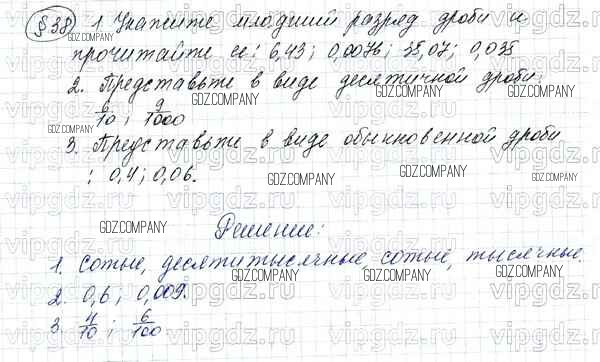 § 38 1. Укажите младший разряд дроби и
прочитайте ее: 6,43; 0,0076; 35,07; 0,035
2. Представьте в виде десятичной дроби:
6/10; 9/1000
3. Представьте в виде обыкновенной дроби
: 0,4; 0,06.
Решение:
1. Сотые, десятитысячные сотые, тысячные.
2. 0,6; 0,009.
3. 4/10; 6/100
GDZ.COMPANY
vipgdz.ru